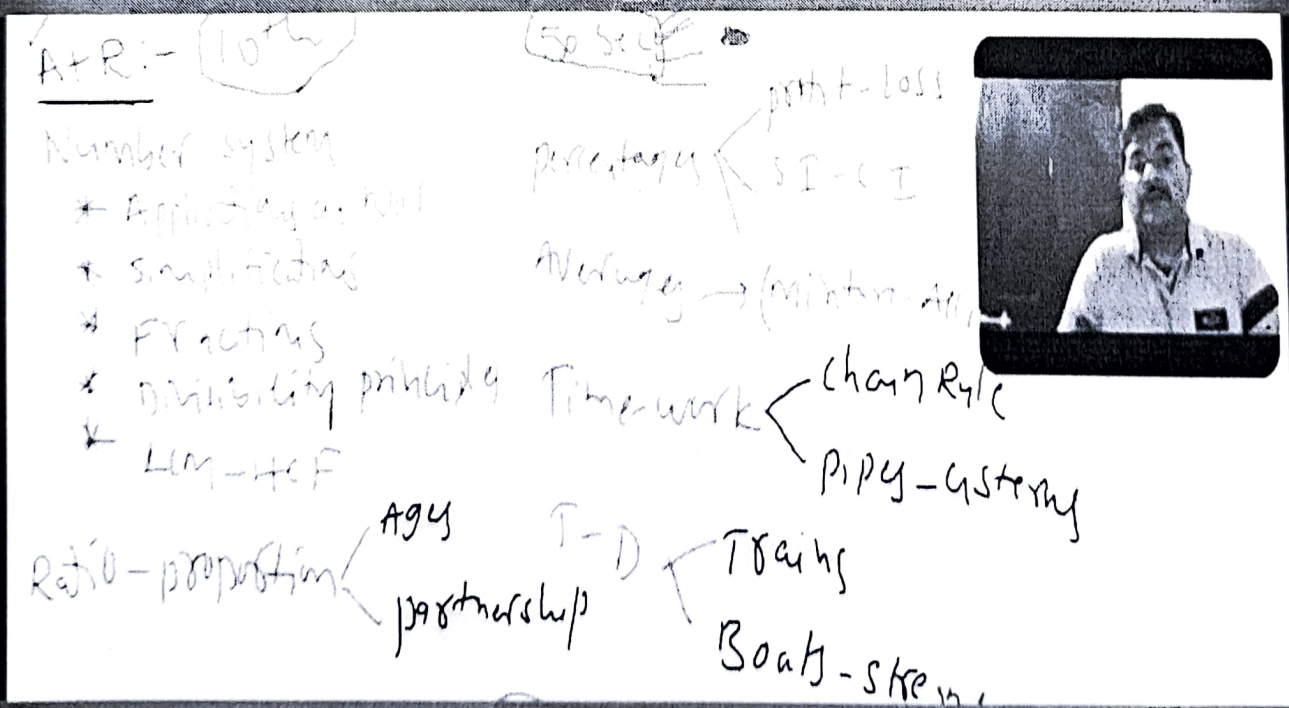 A+R:- 10th
50 sec
Number system
* Simplifications
* Fractions
* Divisibility principles
* LCM-HCF
Ratio-proportion
Ages
partnership
percentages
profit-loss
SI-CI
Averages →
Time-work
Chain Rule
Pipes-cisterns
T-D
Trains
Boats-